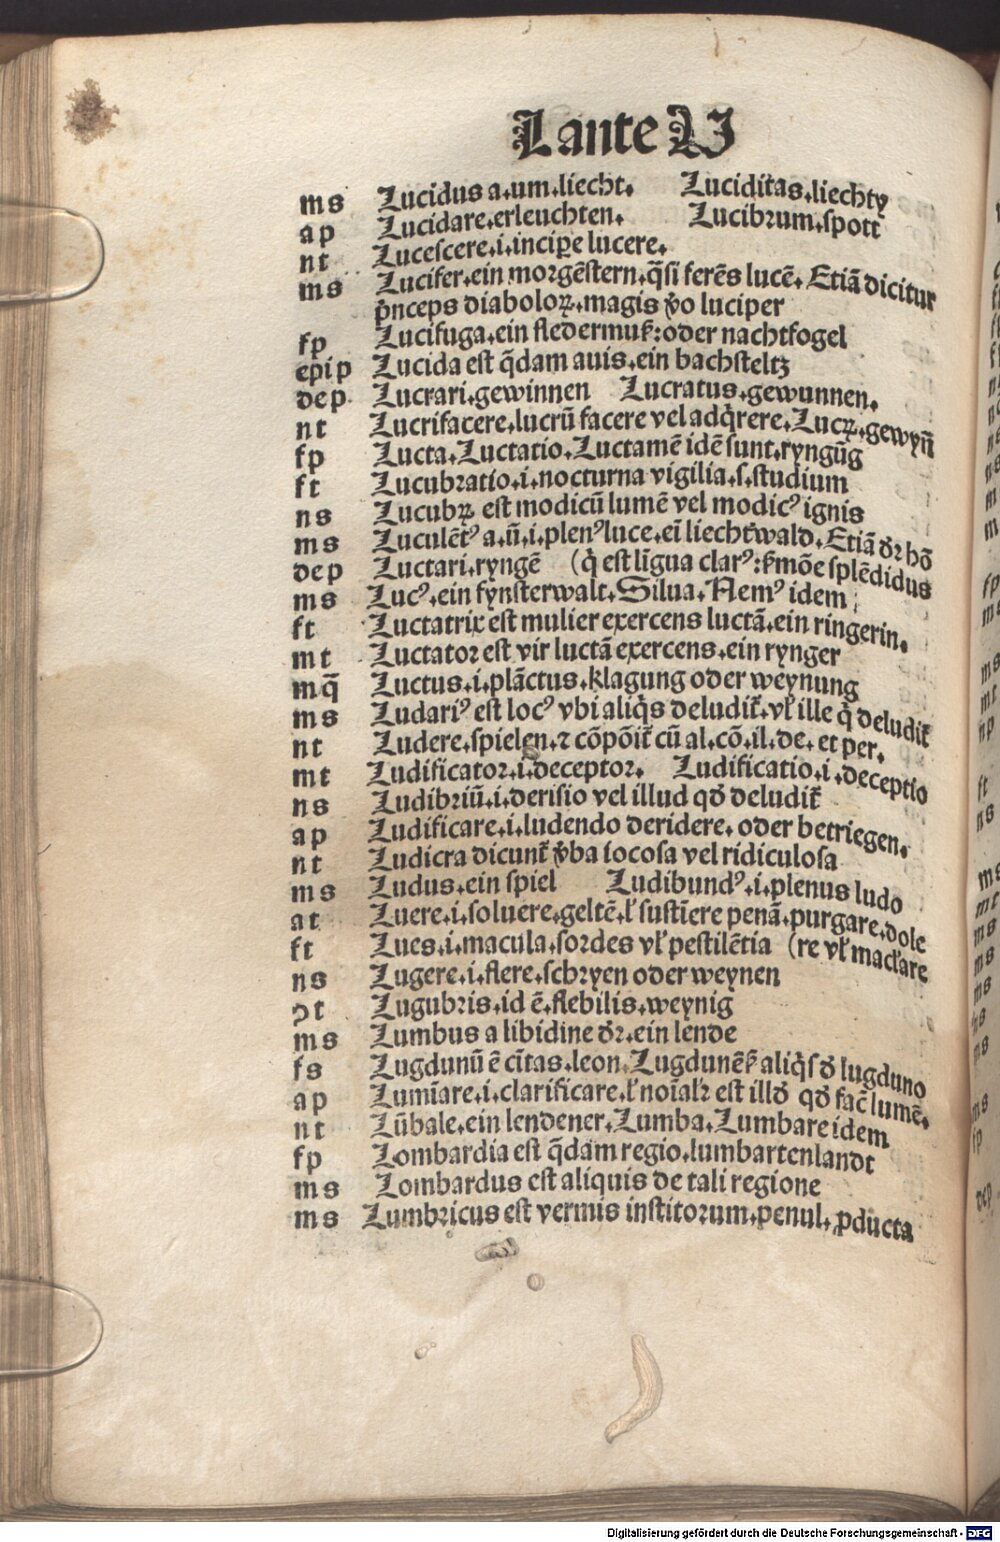 Lante U
ms Lucidus a.um.liecht. Luciditas.liechty
ap Lucidare.erleuchten. Lucibrum.spott
nt Lucescere.i.incipere lucere.
ms Lucifer.ein morgēstern.q̄si ferēs lucē. Etiā dicitur
p̄nceps diaboloꝝ.magis v̓o luciper
fp Lucifuga.ein fledermuß:oder nachtfogel
epip Lucida est q̄dam auis.ein bachsteltz
dep Lucrari.gewinnen Lucratus.gewunnen.
nt Lucrifacere.lucrū facere vel adq̇rere.Lucꝝ.gewyn̄
fp Lucta.Luctatio.Luctamē idē sunt.ryngūg
ft Lucubratio.i.nocturna vigilia.s.studium
ns Lucubꝝ est modicū lumē vel modicꝰ ignis
ms Luculētꝰ a.ū.i.plenꝰ luce.ei liechtwald.Etiā dr̄ hō
dep Luctari.ryngē (q̇ est līgua clarꝰ: ßmōe splēdidus
ms Lucꝰ.ein fynsterwalt.Silua.Nemꝰ idem
ft Luctatrix est mulier exercens luctā.ein ringerin.
mt Luctator est vir luctā exercens.ein rynger
mq̄ Luctus.i.plāctus.klagung oder weynung
ms Ludariꝰ est locꝰ vbi aliq̇s deludit̄.vł ille q̇ deludit̄
nt Ludere.spielen.⁊ cōpōit̄ cū al.cō.il.de.et per.
mt Ludificator.i.deceptor. Ludificatio.i.deceptio
ns Ludibriū.i.derisio vel illud qd̓ deludit̄
ap Ludificare.i.ludendo deridere.oder betriegen.
nt Ludicra dicunt̄ v̓ba iocosa vel ridiculosa
ms Ludus.ein spiel Ludibundꝰ.i.plenus ludo
at Luere.i.soluere.geltē.ł sustīere penā.purgare.dole
ft Lues.i.macula.sordes vł pestilētia (re vł mac̄lare
ns Lugere.i.flere.schryen oder weynen
ꝯt Lugubris.id ē.flebilis.weynig
ms Lumbus a libidine dr̄.ein lende
fs Lugdunū ē cītas.leon.Lugdunēß aliq̇s d̓ lugduno
ap Lumīare.i.clarificare.ł noīalr̄ est illd̓ qd̓ fac̄ lumē.
nt Lūbale.ein lendener.Lumba.Lumbare idem
fp Lombardia est q̄dam regio.lumbartenlandt
ms Lombardus est aliquis de tali regione
ms Lumbricus est vermis institorum.penul.ꝓducta
Digitalisierung gefördert durch die Deutsche Forschungsgemeinschaft - DFG